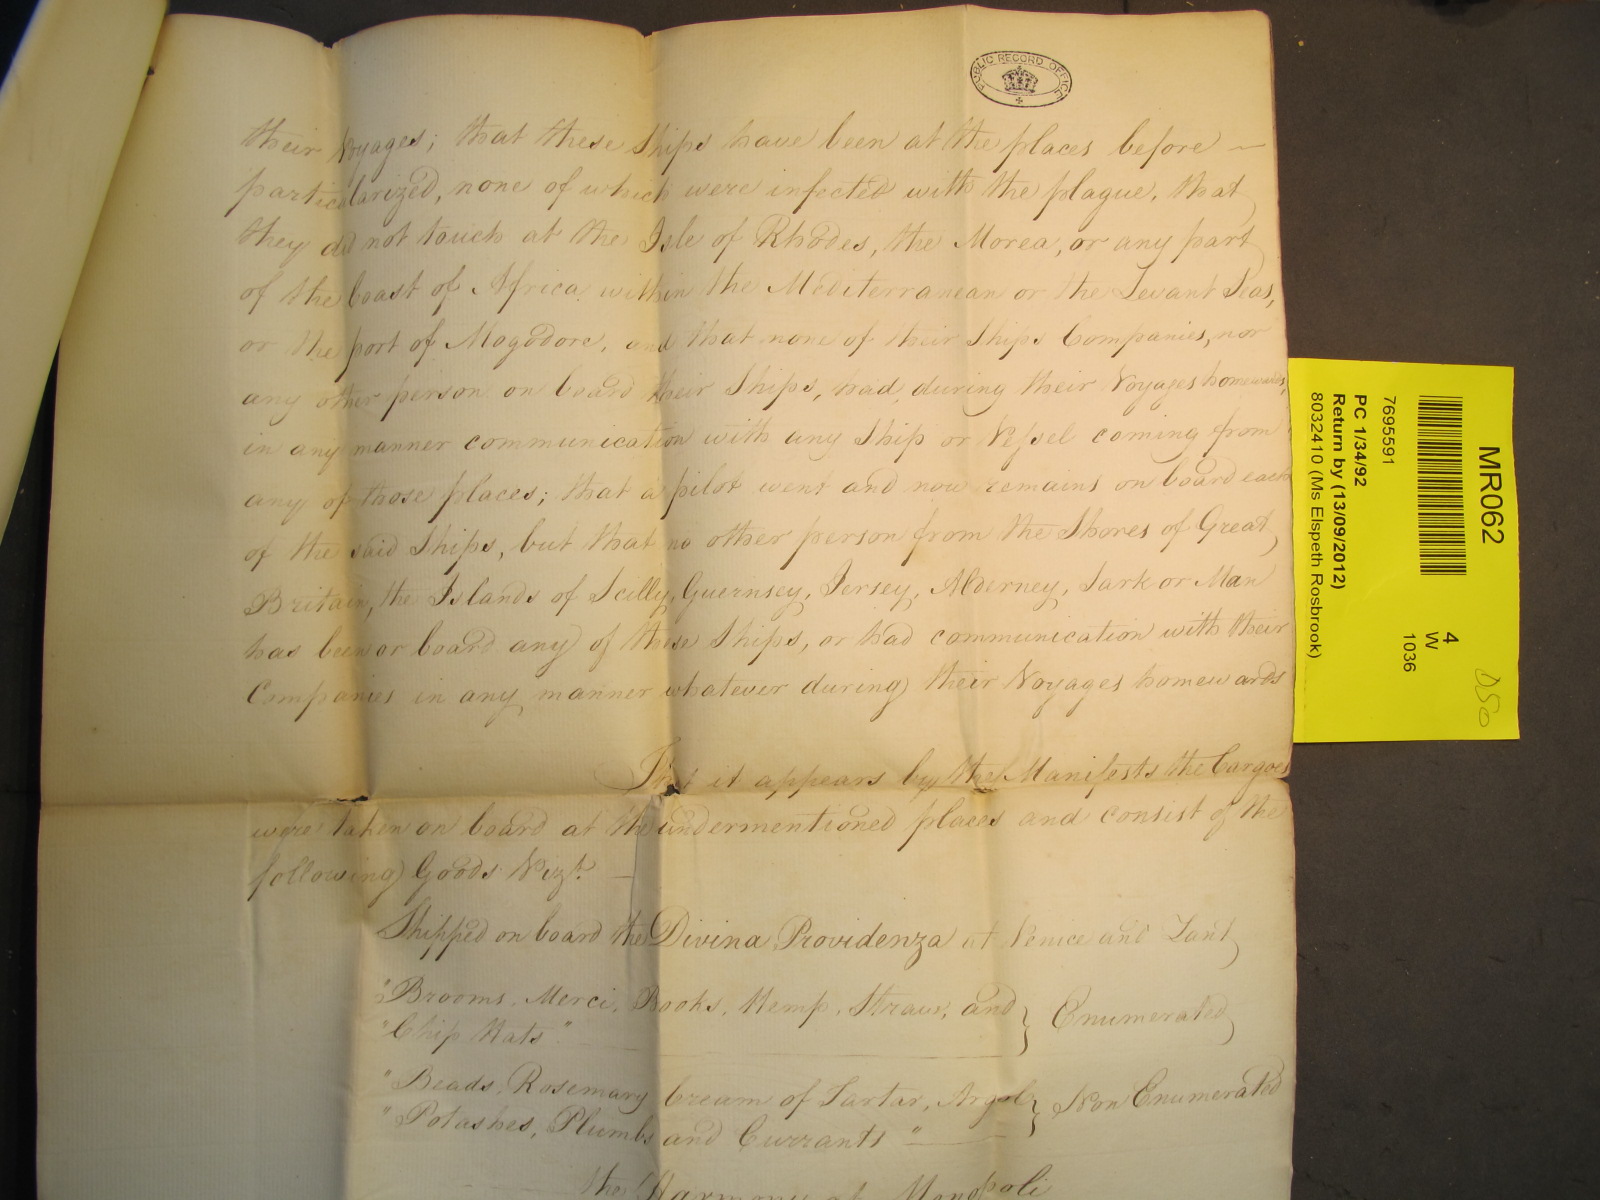 PUBLIC RECORD OFFICE
their Voyages; that these Ships have been at the places before —
particularized, none of which were infected with the plague, that
they did not touch at the Isle of Rhodes, the Morea, or any part
of the Coast of Africa within the Mediterranean or the Levant Seas,
or the port of Mogodore, and that none of their Ships Companies, nor
any other person on board their Ships, had, during their Voyages homewards,
in any manner communication with any Ship or Vessel coming from
any of those places; that a pilot went and now remains on board each
of the said Ships, but that no other person from the Shores of Great
Britain, the Islands of Scilly, Guernsey, Jersey, Alderney, Sark or Man
has been or board any of these Ships, or had communication with their
Companies in any manner whatever during their Voyages homewards
That it appears by the Manifests the Cargoes
were taken on board at the undermentioned places and consist of the
following Goods Vizt. —
Shipped on board the Divina Providenza at Venice and Zant
"Brooms, Merci, Books, Hemp, Straw, and } Enumerated
"Chip Hats"
"Beads, Rosemary Cream of Tartar, Argol } Non Enumerated
"Potashes, Plumbs and Currants "
the Harmony at Monopoli
MR062
7695591
PC 1/34/92
Return by (13/09/2012)
8032410 (Ms Elspeth Rosbrook)
4
W
1036